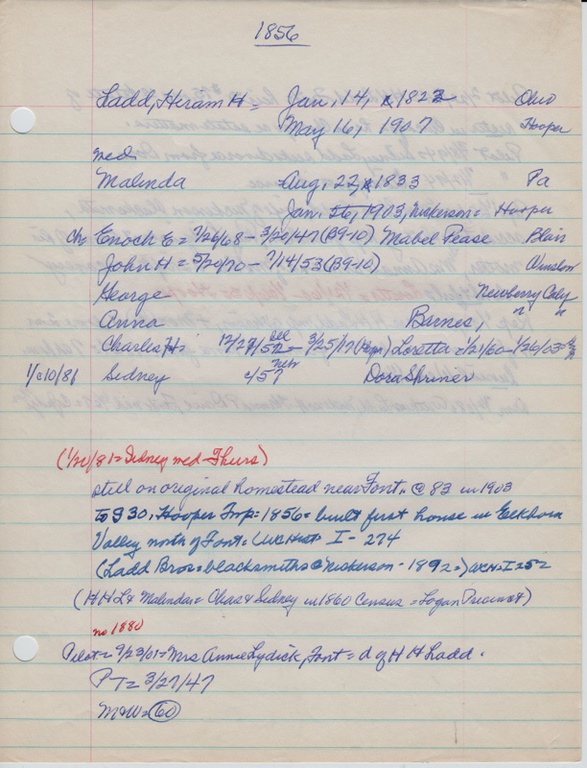 1856
Ladd, Hiram H = Jan, 14, 1822 Ohio
May 16, 1907 Hooper
med
Malinda Aug, 22, 1833 Pa
Jan. 16, 1903, Nickerson = Hooper
Ch Enoch E = 7/26/68 - 3/20/47 (B9-10) Mabel Pease Blair
John H = 5/20/70 - 7/14/53 (B9-10) Winslow
George Newberry
Anna Barnes, " "
Charles H = 12/27/52 - 3/25/17 Loretta = 1/21/60 - 1/26/03 =
Neb
1/c10/81 Sidney c/57 Dora Shriner
(1/20/81 = Sidney med Thurs)
still on original homestead near Font, @ 83 in 1903
to S30, Hooper Twp = 1856 = built first house in Elkhorn
Valley north of Font = I - 274
(Ladd Bros = blacksmiths @ Nickerson - 1892 =) I 252
(H H L & Malinda = Chas & Sidney in 1860 Census = Logan Precinct)
no 1880
Pilot = 9/23/01 = Mrs Annie Lydick, Font = d of H H Ladd.
PT = 3/27/47
M&W = 60